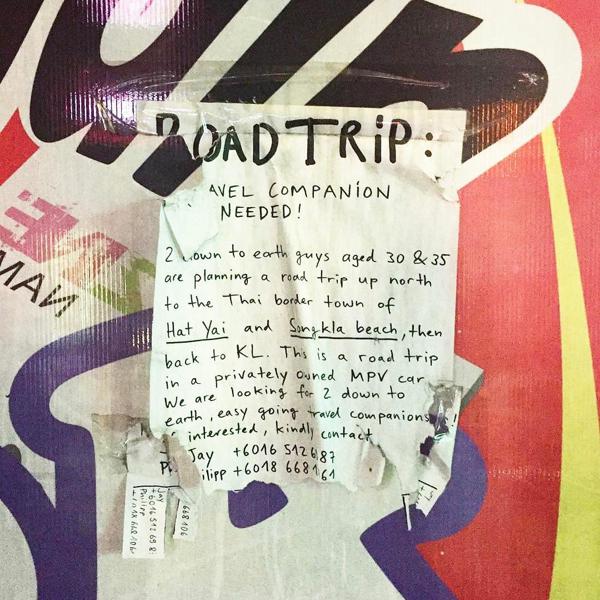 ROAD TRIP:
AVEL COMPANION
NEEDED!
2 down to earth guys aged 30 & 35
are planning a road trip up north
to the Thai border town of
Hat Yai and Songkla beach, then
back to KL. This is a road trip
in a privately owned MPV car.
We are looking for 2 down to
earth, easy going travel companions!
interested, kindly contact
Jay +6016 512 6 87
ilipp +6018 668 1 61
Jay
+6016 512 69 8
Philipp
668 106
MAN